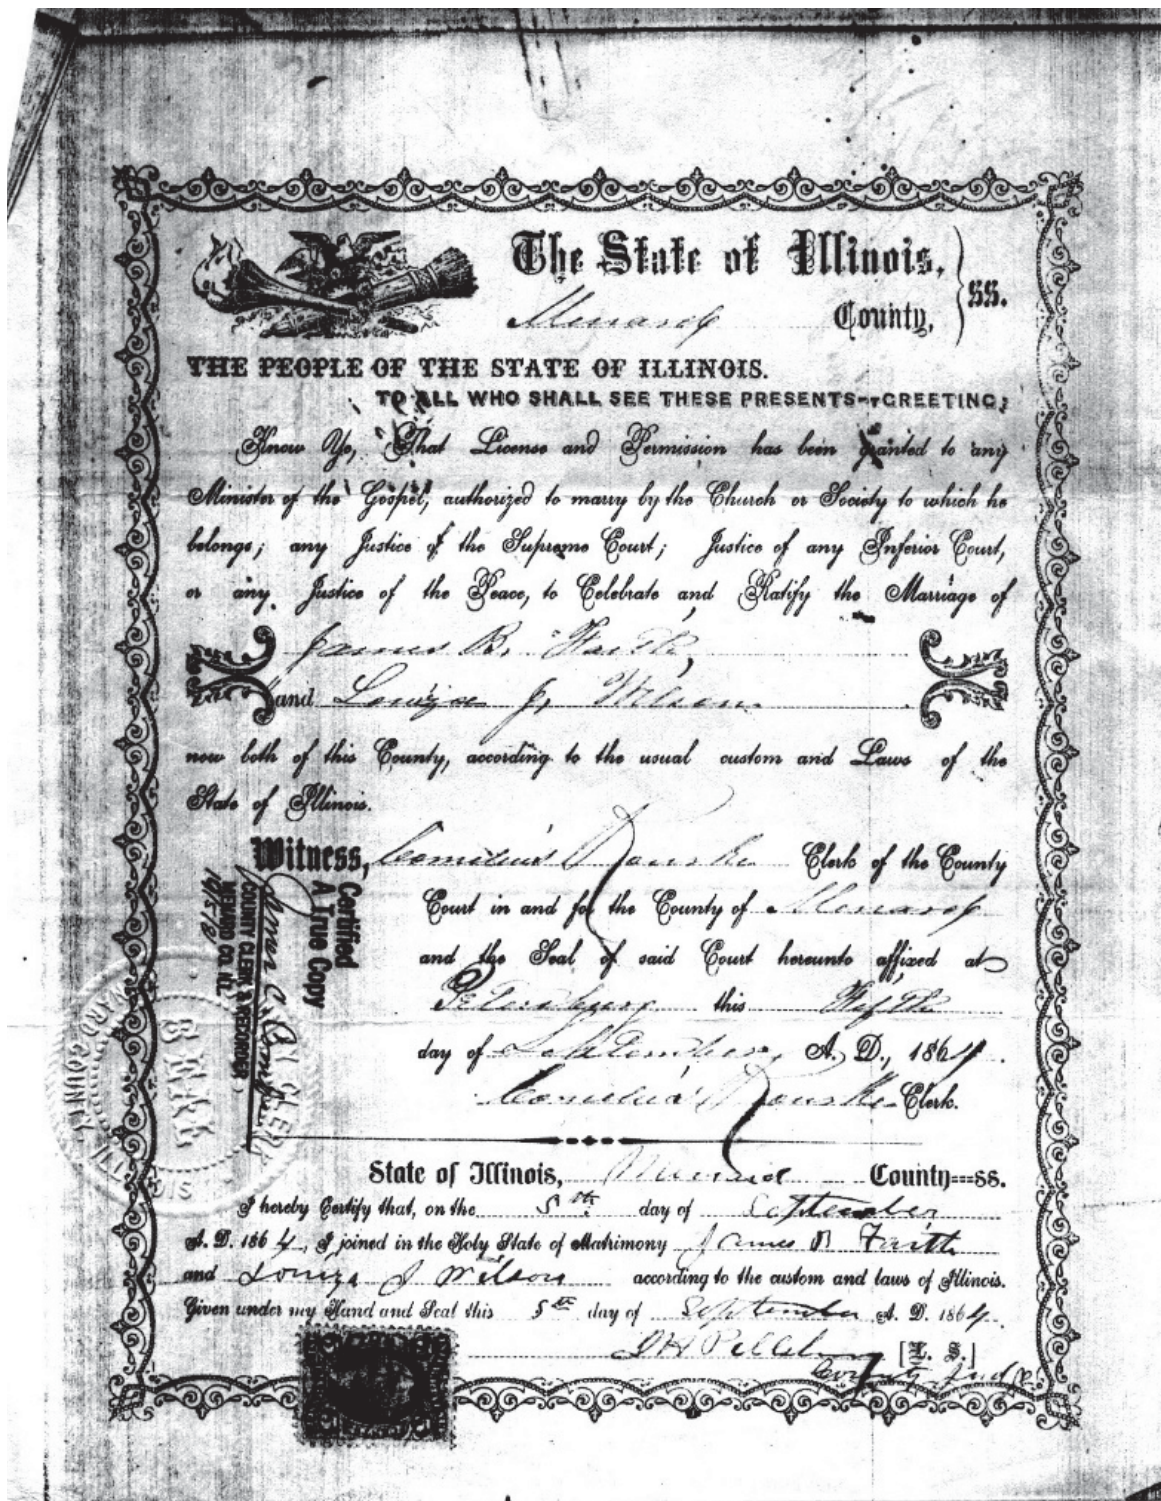 The State of Illinois,
Menard County, } ss.
THE PEOPLE OF THE STATE OF ILLINOIS.
TO ALL WHO SHALL SEE THESE PRESENTS--GREETING;
Know Ye, That License and Permission has been granted to any
Minister of the Gospel, authorized to marry by the Church or Society to which he
belongs; any Justice of the Supreme Court; Justice of any Inferior Court,
or any Justice of the Peace, to Celebrate and Ratify the Marriage of
James B. Faith,
and Louiza J. Wilson
now both of this County, according to the usual custom and Laws of the
State of Illinois.
Witness, Cornelius Rourke Clerk of the County
Court in and for the County of Menard
and the Seal of said Court hereunto affixed at
Petersburg this Fifth
day of September, A. D., 1864.
Cornelius Rourke Clerk.
Certified
A True Copy
COUNTY CLERK & RECORDER
MENARD CO. ILL.
State of Illinois, Menard County==ss.
I hereby Certify that, on the 5th day of September
A. D. 1864, I joined in the Holy State of Matrimony James B Faith
and Louiza J Wilson according to the custom and laws of Illinois.
Given under my Hand and Seal this 5th day of September A. D. 1864.
[L. S.]
County Judge